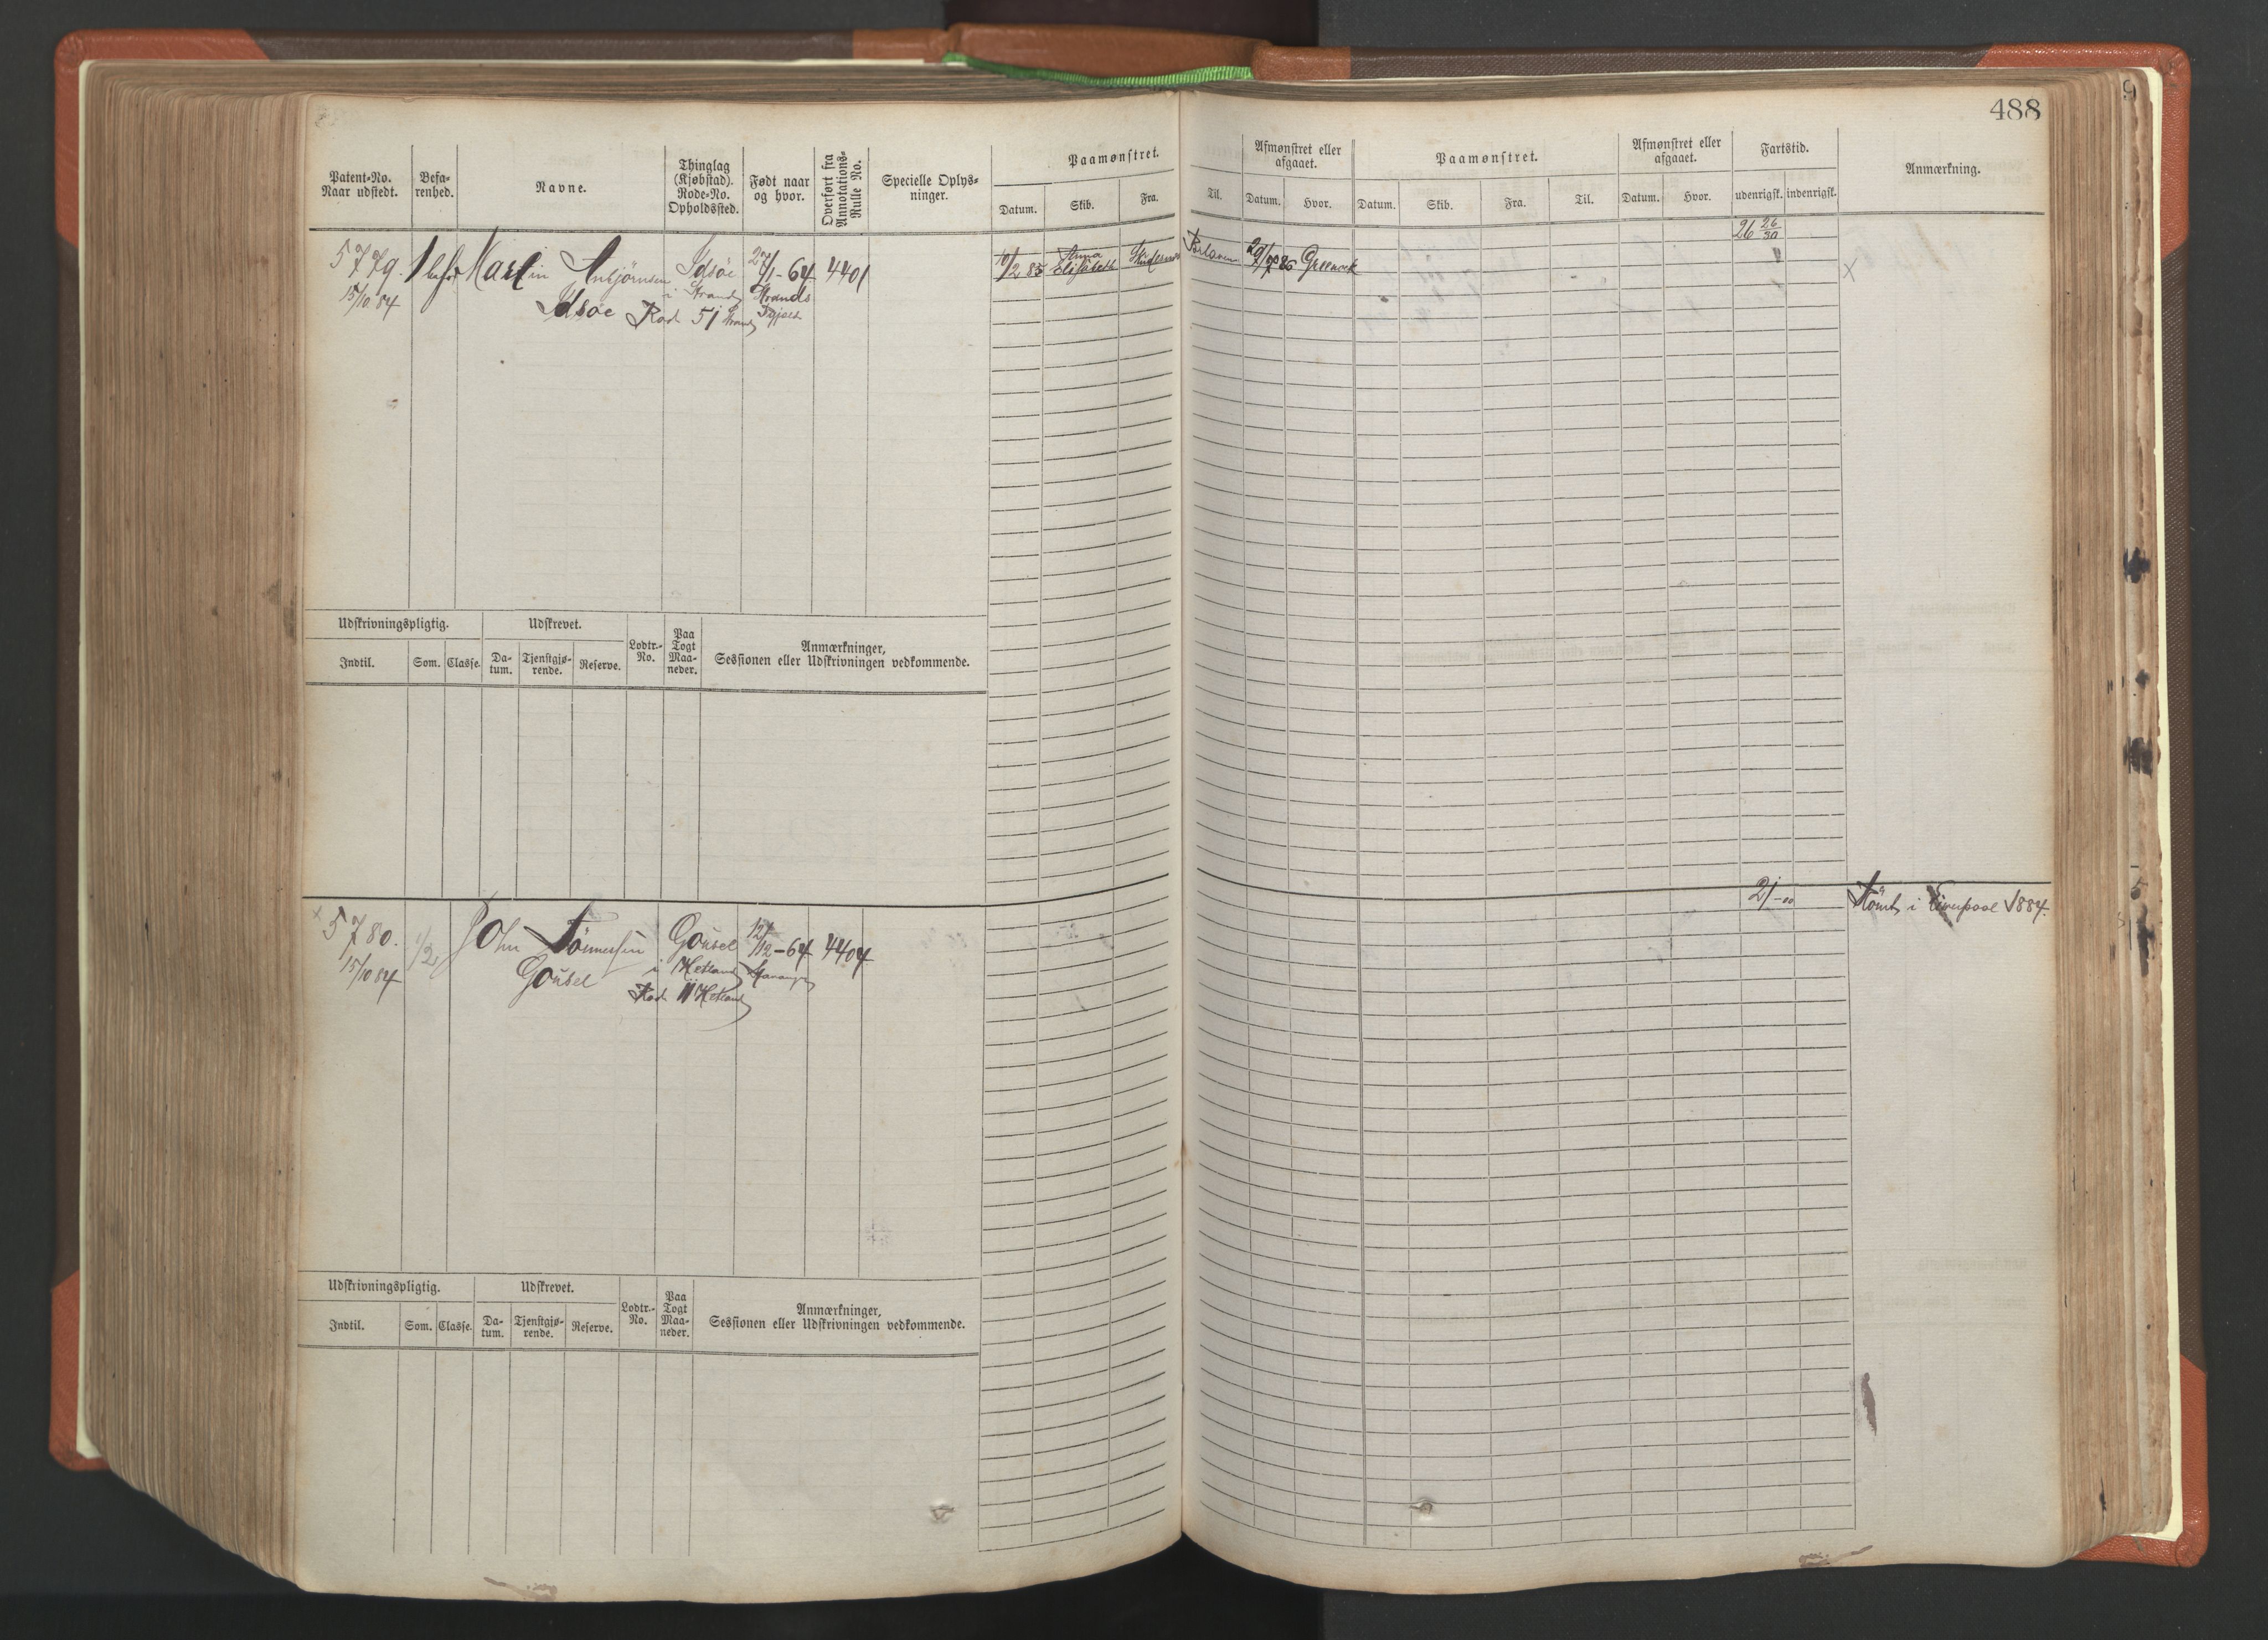 488
Patent-No. Naar udstedt.
Befarenhed.
Navne.
Thinglag (Kjøbstad). Rode-No. Opholdssted.
Født naar og hvor.
Overført fra Annotations-Rulle No.
Specielle Oplysninger.
Paamønstret.
Datum. Skib. Fra. Til.
Afmønstret eller afgaaet.
Datum. Hvor.
Paamønstret.
Datum. Skib. Fra. Til.
Afmønstret eller afgaaet.
Datum. Hvor.
Fartstid.
udenrigsk. indenrigsk.
Anmærkning.
26 26/30
5779. 1 Martin Idsöe 27/1-64 4401 10/2 85 Anna 29/ 86 Greenock
15/10 84 i Strand Strands Elisabeth
Idsöe 51
Udskrivningspligtig. Udskrevet. Lodtr.-No. Paa Togt Maaneder. Anmærkninger, Sessionen eller Udskrivningen vedkommende.
Indtil. Som. Classe. Datum. Tjenstgjørende. Reserve.
21-00 Römt i Liverpool 1884.
5780. 1/2 John Tönnessen Gousel 12/12-64 4404
15/10 84 Gousel i Hetland Stavanger
11 Hetland
Udskrivningspligtig. Udskrevet. Lodtr.-No. Paa Togt Maaneder. Anmærkninger, Sessionen eller Udskrivningen vedkommende.
Indtil. Som. Classe. Datum. Tjenstgjørende. Reserve.